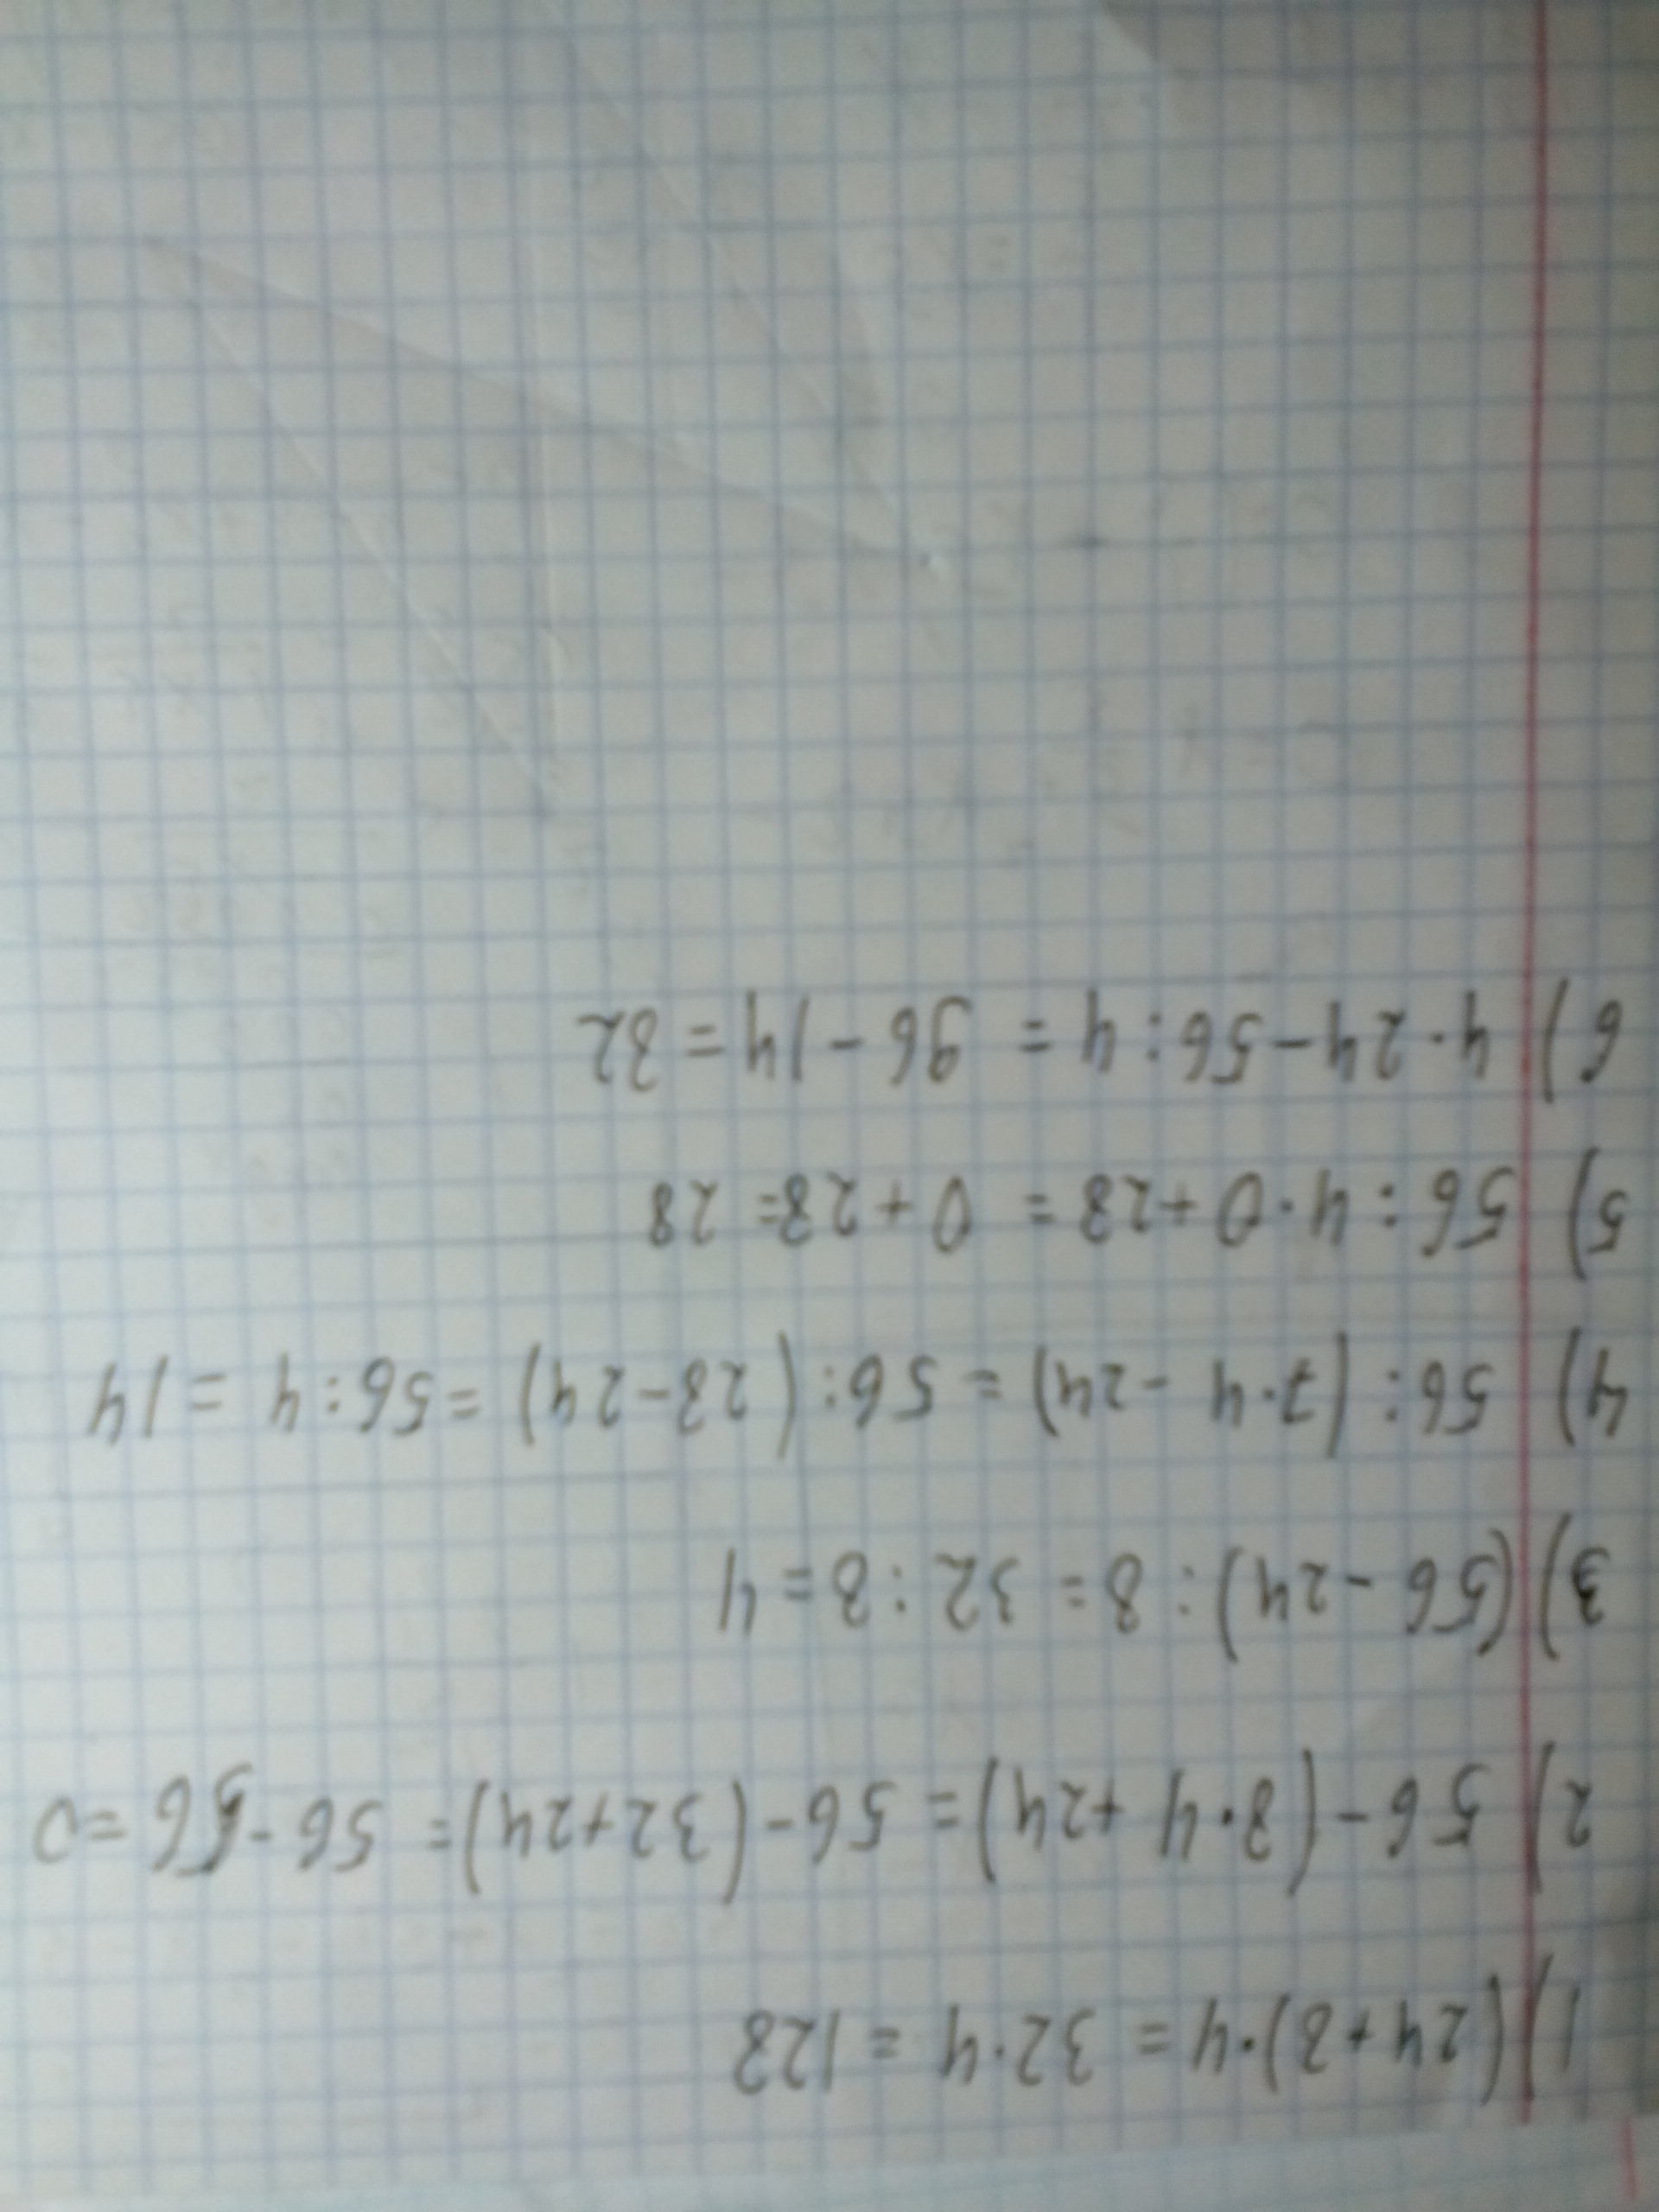 1) (24+8)·4 = 32·4 = 128
2) 56-(8·4+24)= 56-(32+24)= 56-56=0
3) (56-24):8= 32:8=4
4) 56:(7·4-24)= 56:(28-24)=56:4=14
5) 56:4·0+28= 0+28= 28
6) 4·24-56:4= 96-14=82